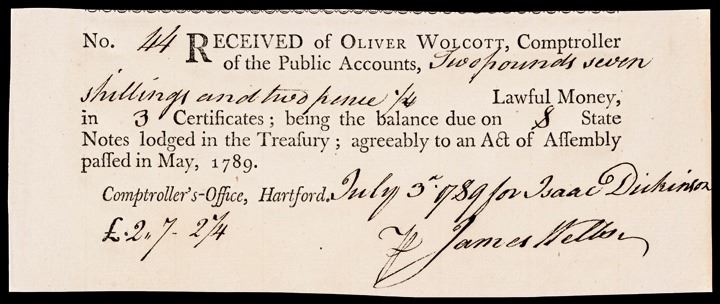 No. 44 RECEIVED of OLIVER WOLCOTT, Comptroller
of the Public Accounts, Two pounds seven
shillings and two pence 1/4 Lawful Money,
in 3 Certificates; being the balance due on 8 State
Notes lodged in the Treasury; agreeably to an Act of Assembly
paſſed in May, 1789.
Comptroller's-Office, Hartford. July 3r 1789 for Isaac Dickinson
£:2,,7-2 1/4
James Wells